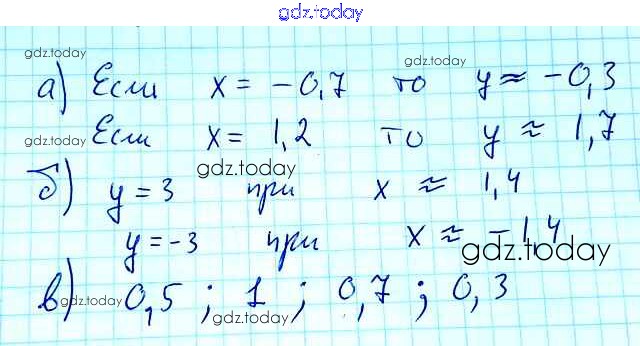 gdz.today
gdz.today gdz.today
а) Если x = -0,7 то y ≈ -0,3
gdz.today
Если x = 1,2 то y ≈ 1,7
gdz.today
б) y = 3 при x ≈ 1,4
y = -3 при x ≈ -1,4
gdz.today
в) 0,5 ; 1 ; 0,7 ; 0,3
gdz.today
gdz.today